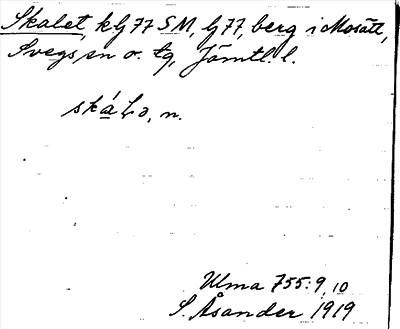 Skalet, kG77 SM, G77, berg i Mosätt,
Svegs sn o. tg, Jämtl. l.
skáLə, n.
Ulma 755:9, 10
S. Åsander 1919